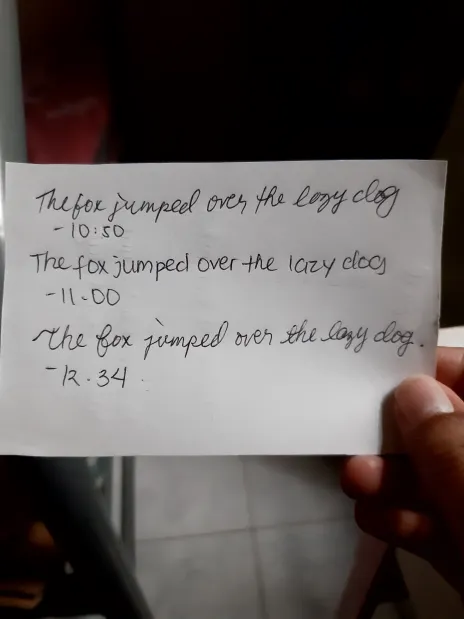 The fox jumped over the lazy dog
- 10:50
The fox jumped over the lazy dog
- 11.00
The fox jumped over the lazy dog.
- 12.34